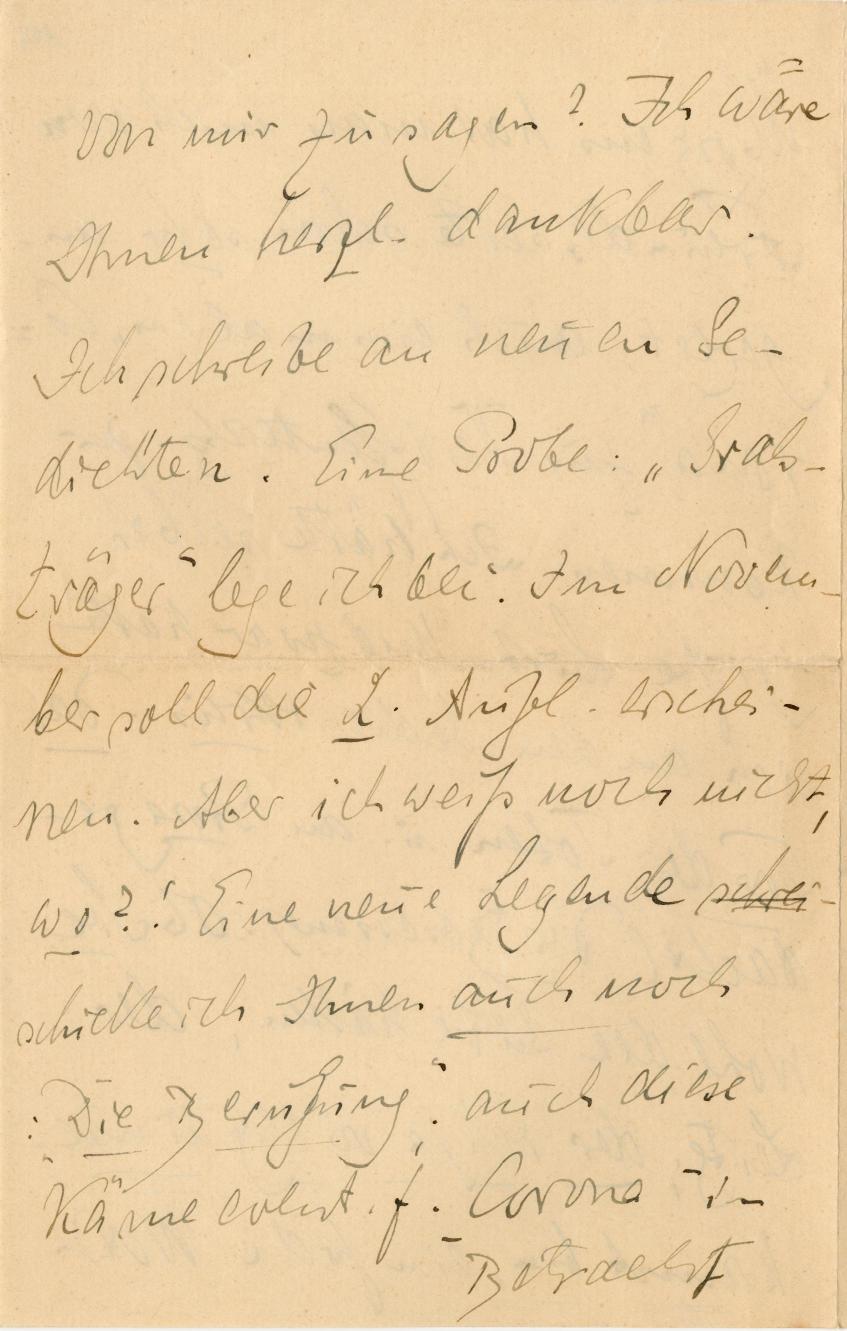 von mir zu sagen? Ich wäre
Ihnen herzl. dankbar.
Ich schreibe an neuen Ge-
dichten. Eine Probe: „Grals-
träger“ lege ich bei. Im Novem-
ber soll die 2. Aufl. erschei-
nen. Aber ich weiß noch nicht,
wo?! Eine neue Legende schrei-
schicke ich Ihnen auch noch
: „Die Berufung“. auch diese
käme event. f. „Corona“ in
Betracht